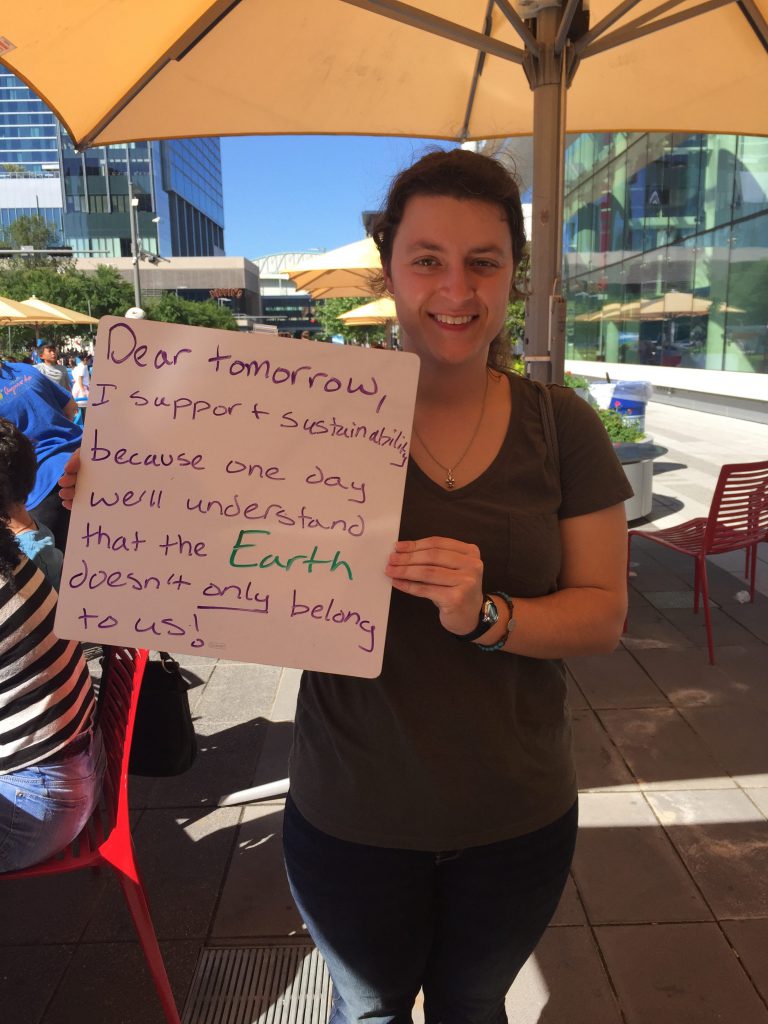 Dear tomorrow,
I support sustainability
because one day
we'll understand
that the Earth
doesn't only belong
to us!